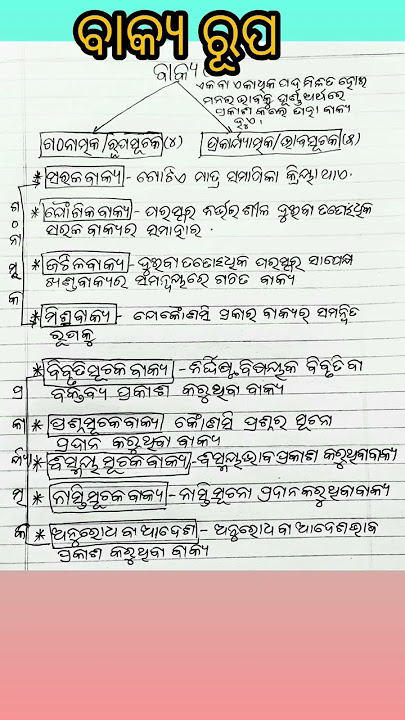 ବାକ୍ୟ ରୂପ
ବାକ୍ୟ
ଏକ ବା ଏକାଧିକ ପଦ ମିଳିତ ହୋଇ
ମନର ଭାବକୁ ପୂର୍ଣ୍ଣ ଅର୍ଥରେ
ପ୍ରକାଶ କଲେ ତାହା ବାକ୍ୟ
ହୁଏ।
ଗଠନାତ୍ମକ/ରୂପସୂଚକ(୪)
ପ୍ରକାର୍ଯ୍ୟାତ୍ମକ/ଭାବସୂଚକ(୫)
ଗଠନାତ୍ମକ
* ସରଳବାକ୍ୟ - ଗୋଟିଏ ମାତ୍ର ସମାପିକା କ୍ରିୟା ଥାଏ.
* ଯୌଗିକ ବାକ୍ୟ - ପରସ୍ପର ନିର୍ଭରଶୀଳ ଦୁଇବା ତତୋଽଧିକ
ସରଳ ବାକ୍ୟର ସମାହାର .
* ଜଟିଳବାକ୍ୟ - ଦୁଇବା ତତୋଽଧିକ ପରସ୍ପର ସାପେକ୍ଷ
ଖଣ୍ଡବାକ୍ୟର ସମନ୍ୱୟରେ ଗଠିତ ବାକ୍ୟ
* ମିଶ୍ରବାକ୍ୟ - ଯେକୌଣସି ପ୍ରକାର ବାକ୍ୟର ସମନ୍ୱିତ
ରୂପକୁ
* ବିବୃତିସୂଚକ ବାକ୍ୟ - ନିର୍ଦ୍ଦିଷ୍ଟ ବିଷୟକ ବିବୃତି ବା
ବକ୍ତବ୍ୟ ପ୍ରକାଶ କରୁଥିବା ବାକ୍ୟ
* ପ୍ରଶ୍ନସୂଚକବାକ୍ୟ କୌଣସି ପ୍ରଶ୍ନର ସୂଚନା
ପ୍ରଦାନ କରୁଥିବା ବାକ୍ୟ
* ବିସ୍ମୟ ସୂଚକ ବାକ୍ୟ - ବିସ୍ମୟଭାବ ପ୍ରକାଶ କରୁଥିବାବାକ୍ୟ
* ନାସ୍ତିସୂଚକବାକ୍ୟ - ନାସ୍ତିସୂଚନା ପ୍ରଦାନକରୁଥିବାବାକ୍ୟ
* ଅନୁରୋଧ ବା ଆଦେଶ - ଅନୁରୋଧ ବା ଆଦେଶଭାବ
ପ୍ରକାଶ କରୁଥିବା ବାକ୍ୟ